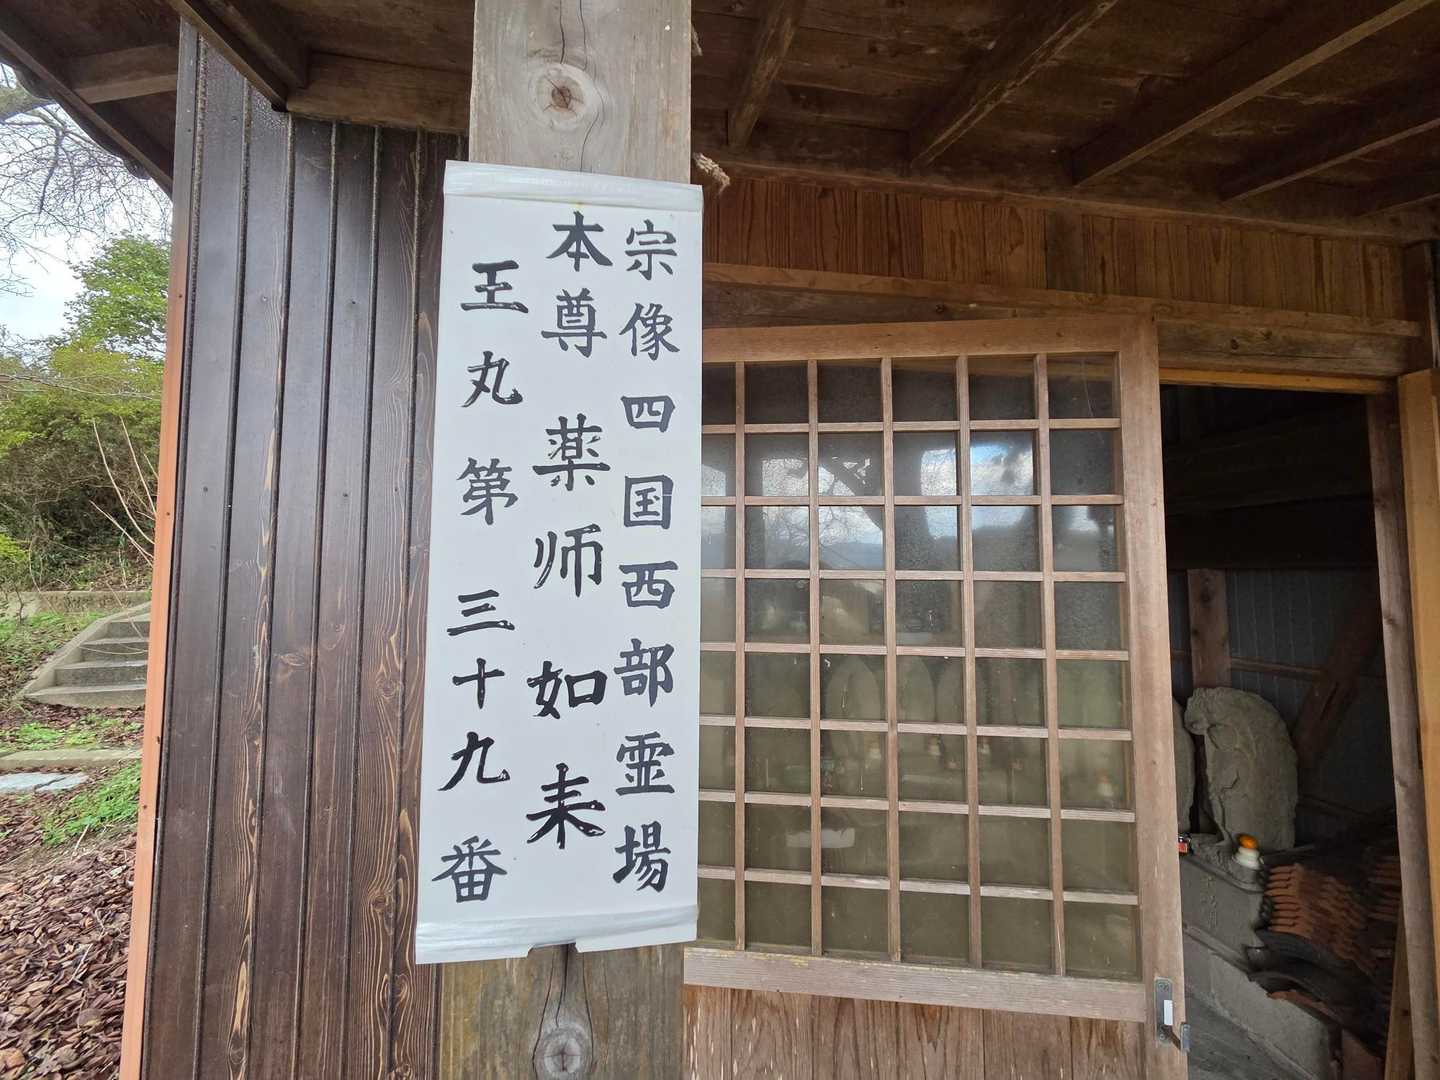 宗像四国西部霊場
本尊 薬师如来
王丸第三十九番